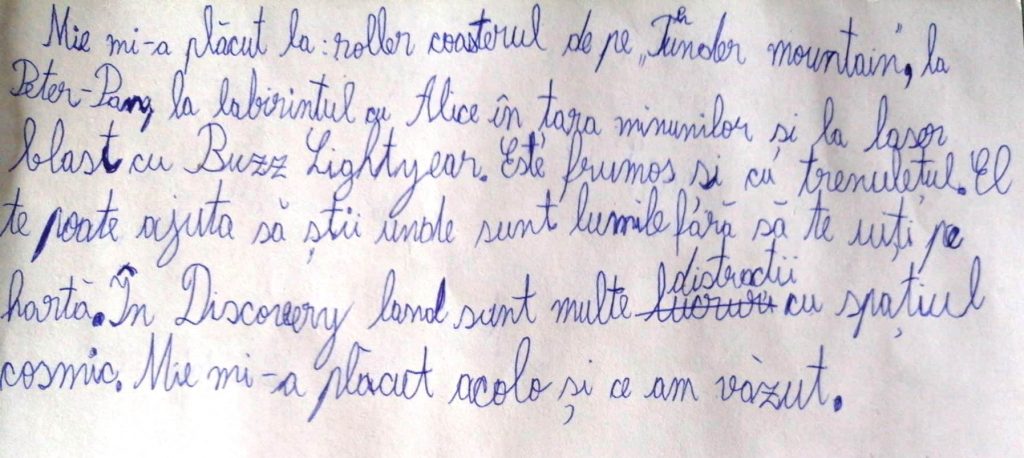 Mie mi-a plăcut la: roller coasterul de pe „Thunder mountain”, la
Peter-Pang la labirintul cu Alice în țara minunilor și la laser
blast cu Buzz Lightyear. Este frumos și cu trenulețul. El
te poate ajuta să știi unde sunt lumile fără să te uiți pe
hartă. În Discovery land sunt multe lucruri distracții cu spațiul
cosmic. Mie mi-a plăcut acolo și ce am văzut.